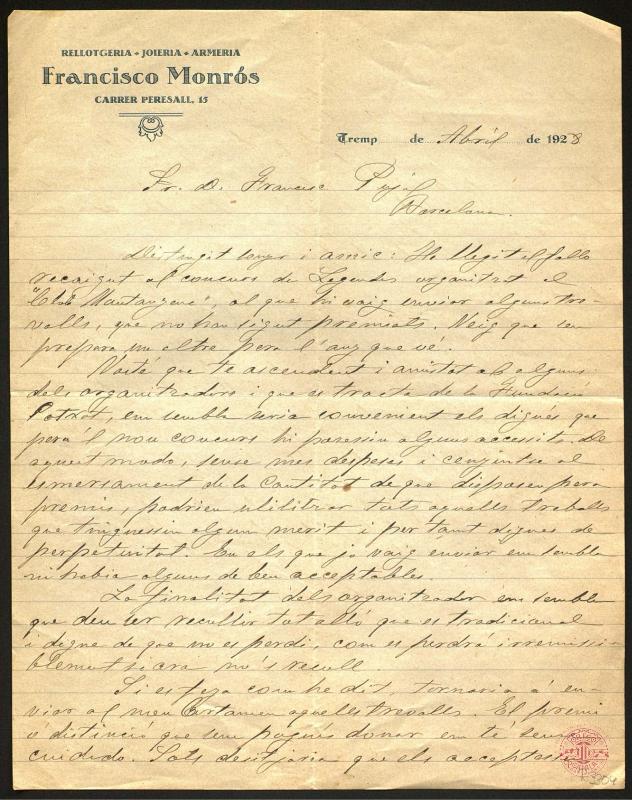 RELLOTGERIA - JOIERIA - ARMERIA
Francisco Monrós
CARRER PERESALL, 15
Tremp de Abril de 1928
Sr. D. Francisc Pujol
Barcelona.
Distingit senyor i amic: He llegit el fallo
recaigut al concurs de Llegendes organitzat el
"Club Muntanyenc", al que hi vaig enviar alguns tre-
valls, que no han sigut premiats. Veig que sen
prepara un altre pera l'any que vé.
Vosté que te ascendent i amistat ab alguns
dels organitzadors i que es tracta de la Fundació
Patxot, em sembla seria convenient els digués que
pera l nou concurs hi posessin alguns accessits. De
aquest modo, sense mes despeses i cenyintse al
esmersament de la Cantitat de que disposen pera
premis, podrien utilitzar tots aquells traballs
que tinguessin algun merit i per tant dignes de
perpetuitat. En els que jo vaig enviar em sembla
ni habia alguns de ben acceptables.
La finalitat dels organitzador em sembla
que deu ser recullir tot alló que es tradicional
i digne de que no es perdi, com es perdrá irremissi-
blement si ara no's recull.
Si es feya com he dit, tornaria á en-
viar al nou certamen aquells trevalls. El premi
o distincio que sem pogués donar em té sens
cuidado. Sols desitjaria que els acceptessin
3304